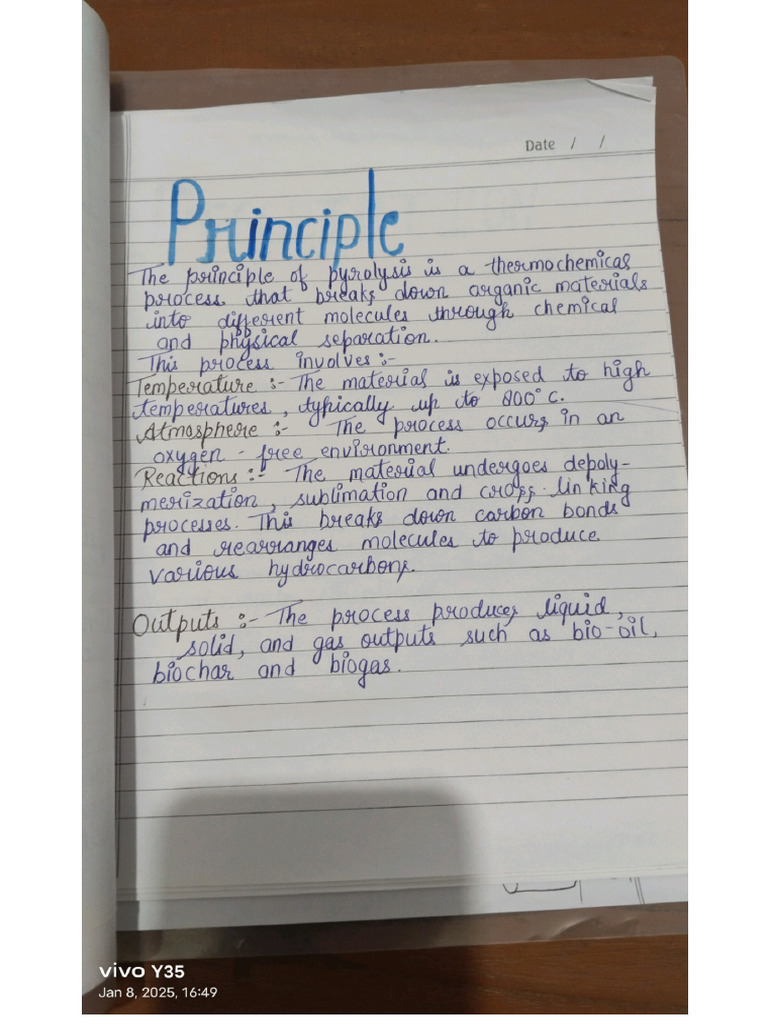 Date / /
Principle
The principle of pyrolysis is a thermochemical
process that breaks down organic materials
into different molecules through chemical
and physical separation.
This process involves :-
Temperature :- The material is exposed to high
temperatures, typically up to 800° C.
Atmosphere :- The process occurs in an
oxygen - free environment.
Reactions :- The material undergoes depoly-
merization, sublimation and cross-linking
processes. This breaks down carbon bonds
and rearranges molecules to produce
various hydrocarbons.
Outputs :- The process produces liquid,
solid, and gas outputs such as bio-oil,
biochar and biogas.
vivo Y35
Jan 8, 2025, 16:49